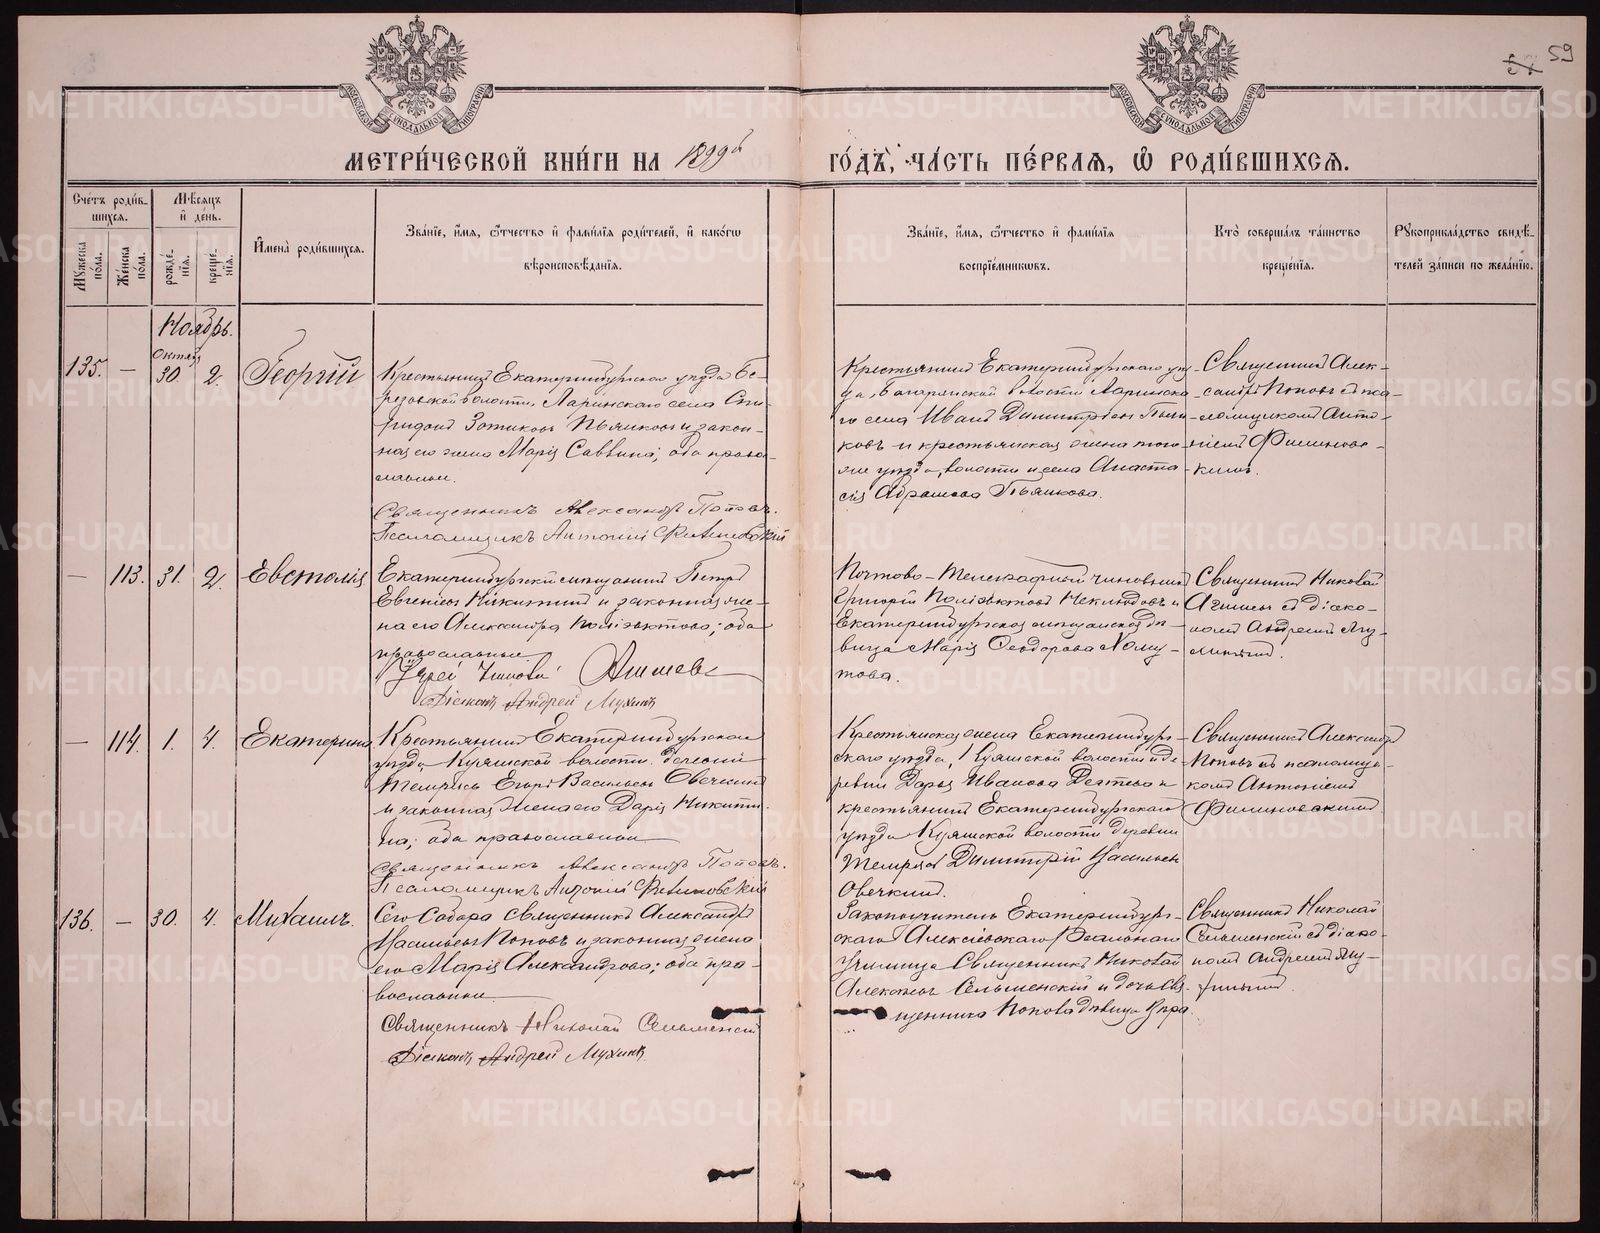 57 59
МОСКОВСКОЙ СѴНОДАЛЬНОЙ ТИПОГРАФІИ
МОСКОВСКОЙ СѴНОДАЛЬНОЙ ТИПОГРАФІИ
МЕТРИ́ЧЕСКОЙ КНИ́ГИ НА 1899й ГО́ДЪ, ЧА́СТЬ ПЕ́РВАЯ, Ѡ РОДИ́ВШИХСЯ.
Сче́тъ роди́в-
шихся.
Му́жеска по́ла.
Же́нска по́ла.
Мѣ́сяцъ
и де́нь.
рожде́-
нія.
креще́-
нія.
Имена̀ роди́вшихся.
Зва́ніе, и́мя, о́тчество и фами́лія роди́телей, и како́гѡ
вѣроисповѣ́данія.
Зва́ніе, и́мя, о́тчество и фами́лія
воспріе́мниковъ.
Кто̀ соверша́лъ та́инство
креще́нія.
Рукоприкла́дство свидѣ́-
телей за́писи по жела́нію.
Ноябрь.
Октяб.
135. — 30. 2. Георгій
Крестьянинъ Екатеринбургскаго уѣзда Бе-
Ларинскаго села Спи-
ридонъ Зотиковъ Пьянковъ и закон-
ная его жена Марія Саввина; оба право-
славные.
Священникъ Александръ Поповъ.
Псаломщикъ Антоній
Крестьянинъ Екатеринбургскаго уѣз-
да, волости Ларинска-
го села Иванъ Димитріевъ Пьян-
ковъ и крестьянская жена того-
же уѣзда, волости и села Анаста-
сія Абрамова Пьянкова.
Священникъ Алек-
сандръ Поповъ съ пса-
ломщикомъ Анто-
ніемъ
— 113. 31. 2. Евстолія
Екатеринбургскій мѣщанинъ Петръ
Евгеніевъ Никитинъ и законная же-
на его Александра Поліэктова; оба
православные
Діаконъ Андрей Мухинъ
Почтово-Телеграфный чиновникъ
Григорій Поліэктовъ Неклюдовъ и
Екатеринбургская мѣщанская дѣ-
вица Марія Ѳеодорова Хому-
това.
Священникъ Николай
съ діако-
номъ Андреемъ Му-
хинымъ.
— 114. 1. 4. Екатерина
Крестьянинъ Екатеринбургскаго
уѣзда, Куяшской волости деревни
Егоръ Васильевъ Овечкинъ
и законная жена его Дарія Никити-
на; оба православные
Священникъ Александръ Поповъ.
Псаломщикъ Антоній
Крестьянская жена Екатеринбург-
скаго уѣзда, Куяшской волости и де-
ревни Дарья Иванова и
крестьянинъ Екатеринбургскаго
уѣзда Куяшской волости деревни
Димитрій Васильевъ
Овечкинъ.
Священникъ Александръ
Поповъ съ псаломщи-
комъ Антоніемъ
136. — 30. 4. Михаилъ.
Сего Собора священникъ Александръ
Васильевъ Поповъ и законная жена
его Марія Александрова; оба пра-
вославные
Священникъ Николай Сельменскій
Діаконъ Андрей Мухинъ
Законоучитель Екатеринбург-
скаго Алексѣевскаго Реальнаго
Училища Священникъ Николай
Алексѣевъ Сельменскій и дочь свя-
щенника Попова дѣвица Вѣра.
Священникъ Николай
Сельменскій съ діако-
номъ Андреемъ Му-
хинымъ.
METRIKI.GASO-URAL.RU